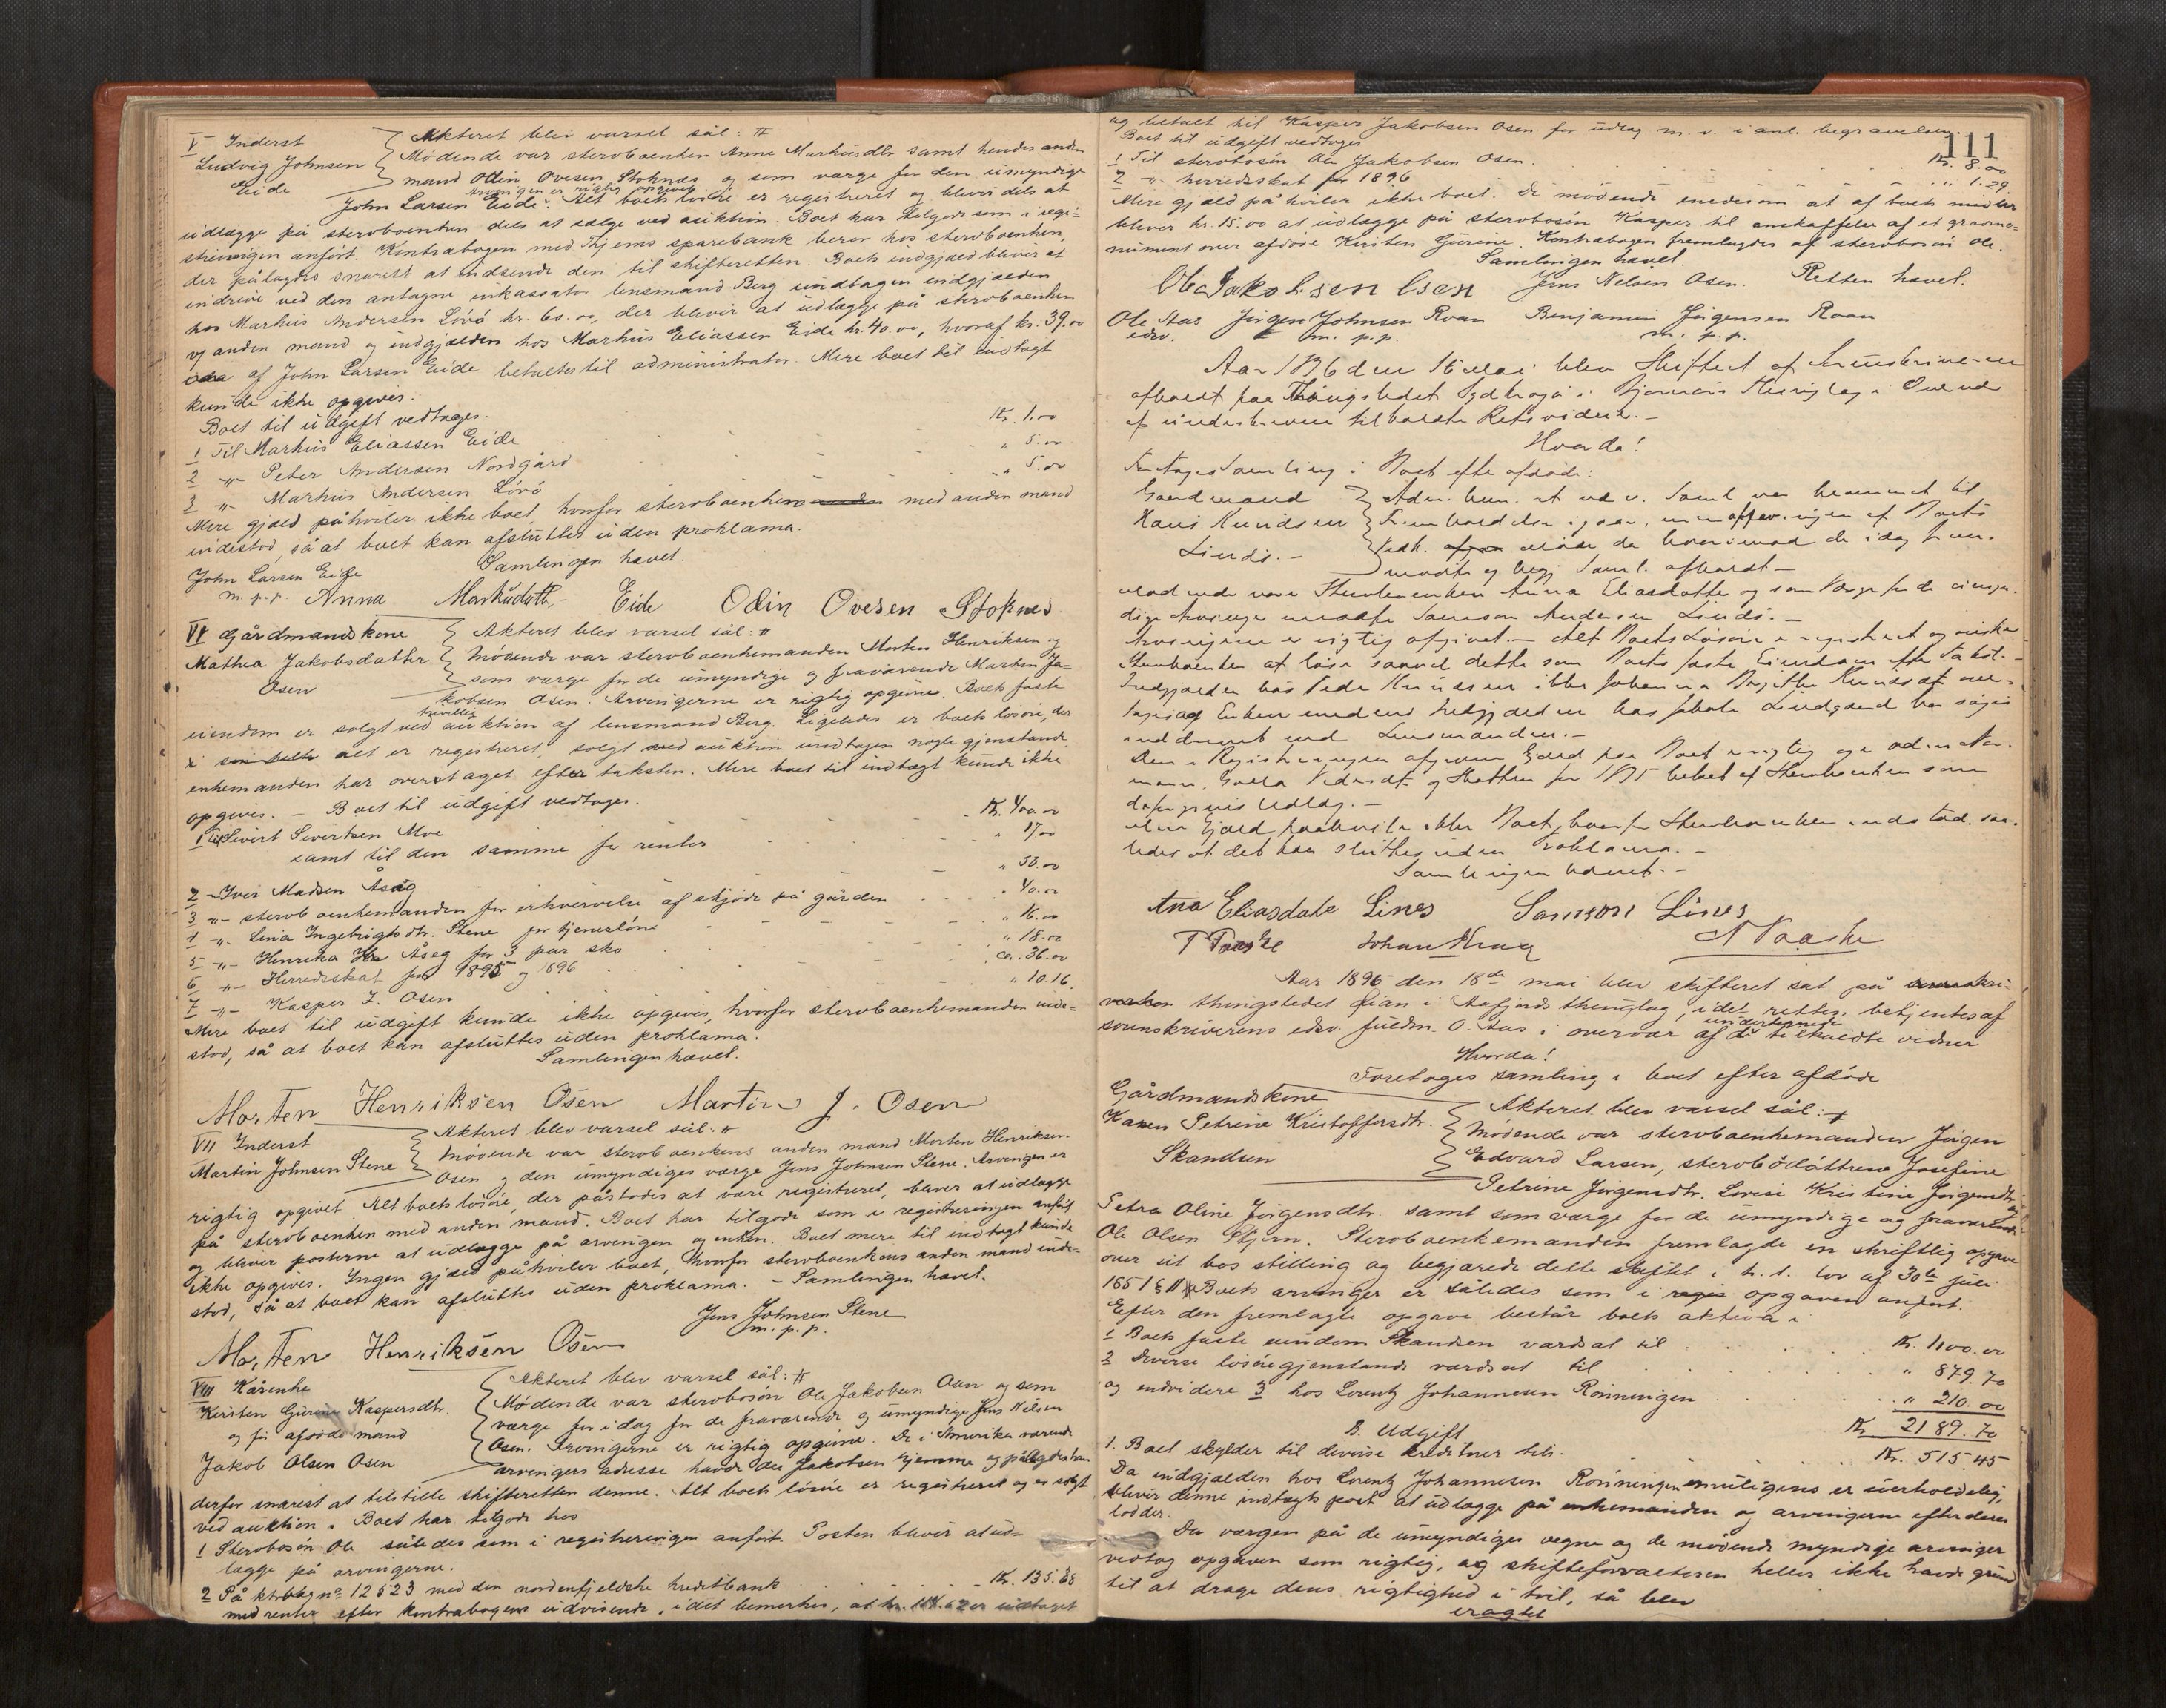 V Inderst
Ludvig Johnsen
Eide
Akteret blev varsel sål: #
Mødende var stervboenken Anne Markusdtr samt hendes anden
mand Odin Ovesen Stoknes og som værge for den umyndige
John Larsen Eide. Arvingen er rigtig opgivet. Alt boets løsøre er registreret og blev dels at
udlægge på stervboenken dels at sælge ved auktion. Boet har tilgode som i regi-
streringen anført. Kontrabogen med Stjerns sparebank beror hos stervboenken,
der pålagdes snarest at indsende den til skifteretten. Boets indgjæld bliver at
inddrive ved den antagne inkassator lensmand Berg undtagen indgjælden
hos Markus Andersen Løvø kr. 60.00, der blivir at udlægge på stervboenken
og anden mand og indgjælden hos Markus Eliassen Eide kr. 40.00, hvoraf kr. 39.00
af John Larsen Eide betaltes til administrator. Mere boet til indtægt
kunde ikke opgives.
Boet til udgift vedtages.
1 Til Markus Eliassen Eide Kr. 1.00
2 -"- Peter Andersen Nordgård " 5.00
3 -"- Markus Andersen Løvø " 5.00
Mere gjæld påhviler ikke boet, hvorfor stervboenken med anden mand
indestod, så at boet kan afsluttes uden proklama.
Samlingen hævet.
John Larsen Eide
m. p. p. Anna Markusdtr Eide Odin Ovesen Stoknes
VI Gårdmandskone
Mathea Jakobsdatter
Osen
Akteret blev varsel sål: #
Mødende var stervboenkemanden Morten Henriksen og
som værge for de umyndige og fraværende Martin Ja-
kobsen Osen. Arvingerne er rigtig opgivne. Boets faste
eiendom er solgt ved frivillig auktion af lensmand Berg. Ligeledes er boets løsøre, der
alt er registreret, solgt ved auktion undtagen nogle gjenstande
enkemanden har overtaget efter taksten. Mere boet til indtægt kunde ikke
opgives. - Boet til udgift vedtoges.
1 Til Sivert Sivertsen Moe Kr. 400.00
samt til den samme for renter " 17.00
2 -"- Iver Madsen Åseg " 50.00
3 -"- stervboenkemanden for erhvervelse af skjøde på gården " 40.00
4 -"- Lina Ingebrigtsdtr. Stene for tjenerløn " 16.00
5 -"- Henrika Åseg for 3 par sko " 18.00
6 -"- Herredsskat for 1895 og 1896 ca. 36.00
7 -"- Kasper J. Osen " 10.16.
Mere boet til udgift kunde ikke opgives, hvorfor stervboenkemanden inde-
stod, så at boet kan afsluttes uden proklama.
Samlingen hævet.
Morten Henriksen Osen Martin J. Osen
VII Inderst
Martin Johnsen Stene
Akteret blev varsel sål: #
Mødende var stervboenkens anden mand Morten Henriksen
Osen og den umyndiges værge Jens Johnsen Stene. Arvingen er
rigtig opgivet. Alt boets løsøre, der påstodes at være registreret, bliver at udlægge
på stervboenken med anden mand. Boet har tilgode som i registreringen anført
og blivir posterne at udlægge på arvingen og enken. Boet mere til indtægt kunde
ikke opgives. Ingen gjæld påhviler boet, hvorfor stervboenkens anden mand inde-
stod, så at boet kan afsluttes uden proklama. - Samlingen hævet.
Jens Johnsen Stene
m. p. p.
Morten Henriksen Osen
VIII Kårenke
Kirsten Gurine Kaspersdtr.
og før afdøde mand
Jakob Olsen Osen
Akteret blev varsel sål: #
Mødende var stervbosøn Ole Jakobsen Osen og som
værge for idag for de fraværende og umyndige Jens Nilsen
Osen. Arvingerne er rigtig opgivne. De i Amerika værende
arvingers adresse havde Ole Jakobsen hjemme og pålagdes han
derfor snarest at tilstille skifteretten denne. Alt boets løsøre er registreret og er solgt
ved auktion. Boet har tilgode hos
1 Stervbosøn Ole således som i registreringen anført. Posten blivir at ud-
lægge på arvingerne.
2 På ktrbk no 12523 med den nordenfjeldske kreditbank Kr. 135.68
med renter efter kontrabogens udvisende, idet bemerkes, at kr. er udtaget
111
og betalt til Kasper Jakobsen Osen for udlæg m. v. i anl. begravelsen.
Boet til udgift vedtoges
1 Til stervbosøn Ole Jakobsen Osen. Kr. 8.00
2 -"- herredsskat for 1896 " 1.29.
Mere gjæld påhviler ikke boet. De mødende enedes om at af boets midler
bliver kr. 15.00 at udlægge på stervbosøn Kasper til anskaffelse af et gravmo-
nument over afdøde Kirsten Gurine. Kontrabogen fremlagdes af stervbosøn Ole.
Samlingen hævet.
Ole Jakobsen Osen Jens Nelsen Osen. Retten hævet.
Ole Aas Jørgen Johnsen Roan Benjamin Jørgensen Roan
edsv. m. p. p. m. p. p.
Aar 1896 den 16 Mai blev Skifteret af Sorenskriveren
afholdt paa Thingstedet i Bjørnørs Thinglag i Overvær
af underskrevne tilkaldte Retsvidner. -
Hvorda!
Foretages Samling i Boet efter afdøde:
Gaardmand
Hans Knudsen
Linds. -
Adm. Samt. var berammet til
Vedk. møde da de idag frem-
mødte og begj. Saml. afholdt -
Mødende var Stervboenken Anna Eliasdatter og som Værge for de umyn-
dige Arvinger Samson Andersen Linds. -
Arvingerne er rigtig opgivet. - Alt Boets Løsøre er registreret og ønsker
Stervboenken at løse saavel dette som Boets faste Eiendom efter Takst. -
Indgjælden hos Peder Knudsen
inddrevet ved Lensmanden. -
Den i Registreringen opgivne Gjæld paa Boet er rigtig
Mere Gjæld paahviler ikke Boet, hvorfor Stervboenken indestod, saa-
ledes at det kan sluttes uden Proklama. -
Samlingen hævet. -
Ana Eliasdate Lines Samson Lines
Johan Krag
Aar 1896 den 18de mai blev skifteret sat på
thingstedet Øian i Aafjords thinglag, idet retten betjentes af
sorenskriverens edsv. fuldm. O. Aas i overvær af de undertegnede tilkaldte vidner
Hvorda!
Foretoges samling i boet efter afdøde
Gårdmandskone
Karen Petrine Kristoffersdtr.
Skandsen
Akteret blev varsel sål: #
Mødende var stervboenkemanden Jørgen
Edvard Larsen, stervbodøttrene Josefine
Petrine Jørgensdtr. Lovise Kristine Jørgensdtr. og
Petra Oline Jørgensdtr. samt som værge for de umyndige og fraværende
Ole Olsen Stjern. Stervboenkemanden fremlagde en skriftlig opgave
over sit bos stilling og begjærede dette skiftet i h. t. lov af 30te juli
1851 § 11. Boets arvinger er således som i opgaven anført.
Efter den fremlagte opgave består boets aktiva i
1 Boets faste eiendom Skandsen værdsat til Kr. 1100.00
2 Diverse løsøregjenstande værdsat til " 879.70
og endvidere 3 hos Lorentz Johannesen Rønningen " 210.00
Kr. 2189.70
B. Udgift
1. Boet skylder til diverse kreditorer tils. Kr. 515.45
Da indgjælden hos Lorentz Johannesen Rønningen muligens er uerholdelig,
bliver denne indtægtspost at udlægge på enkemanden og arvingerne efter deres
lodder.
Da værgen på de umyndiges vegne og de mødende myndige arvinger
vedtog opgaven som rigtig, og skifteforvalteren heller ikke havde grund
til at drage dens rigtighed i tvil, så blev
eragtet